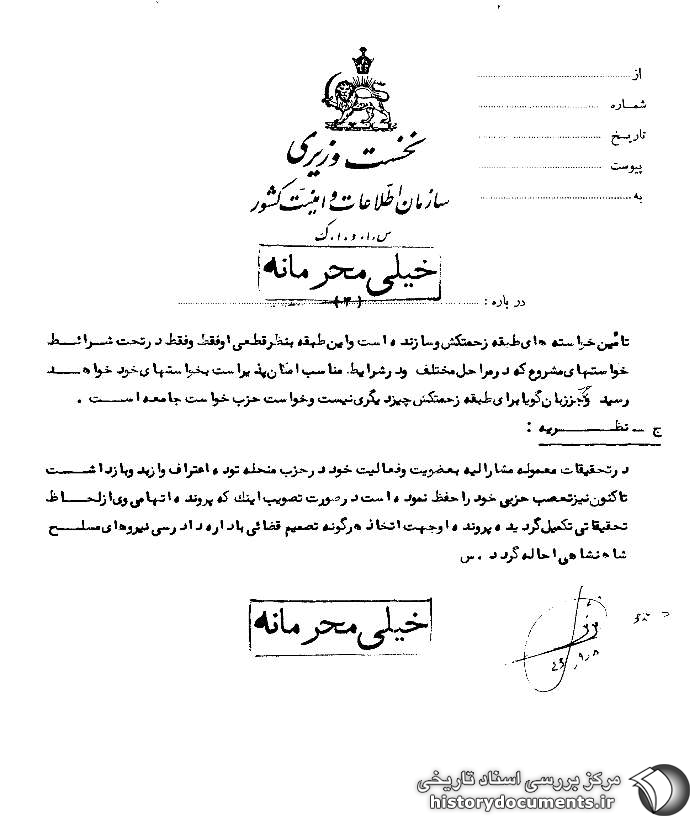 از
شماره
تاریخ
پیوست
به
نخست وزیری
سازمان اطلاعات و امنیت کشور
س.ا.و.ا.ک
خیلی محرمانه
درباره :
(۳)
تأمین خواسته های طبقه زحمتکش وسازنده است واین طبقه بنظرقطعی اوفقط وفقط درتحت شرائط
خواستهای مشروع که درمراحل مختلف ودرشرایط مناسب امکان پذیراست بخواستهای خود خواهد
رسید وحزب جززبان گویا برای طبقه زحمتکش چیزدیگری نیست وخواست حزب خواست جامعه است .
ج ــ نظــریه :
درتحقیقات معموله مشارالیه بعضویت وفعالیت خود درحزب منحله توده اعتراف وازبدوبازداشت
تاکنون نیزتعصب حزبی خود را حفظ نموده است درصورت تصویب اینک که پرونده اتهامی وی ازلحاظ
تحقیقاتی تکمیل گردیده پرونده اوجهت اتخاذ هرگونه تصمیم قضائی باداره دادرسی نیروهای مسلح
شاهنشاهی احاله گردد . س
خیلی محرمانه
مرکز بررسی اسناد تاریخی
historydocuments.ir